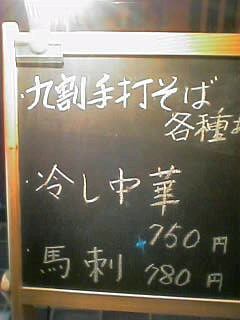 ・九割手打そば
各種
・冷し中華
750円
・馬刺 780円